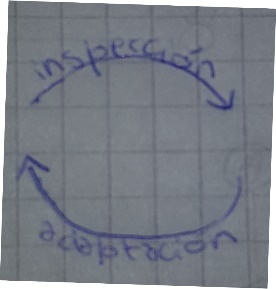 inspección
adaptación